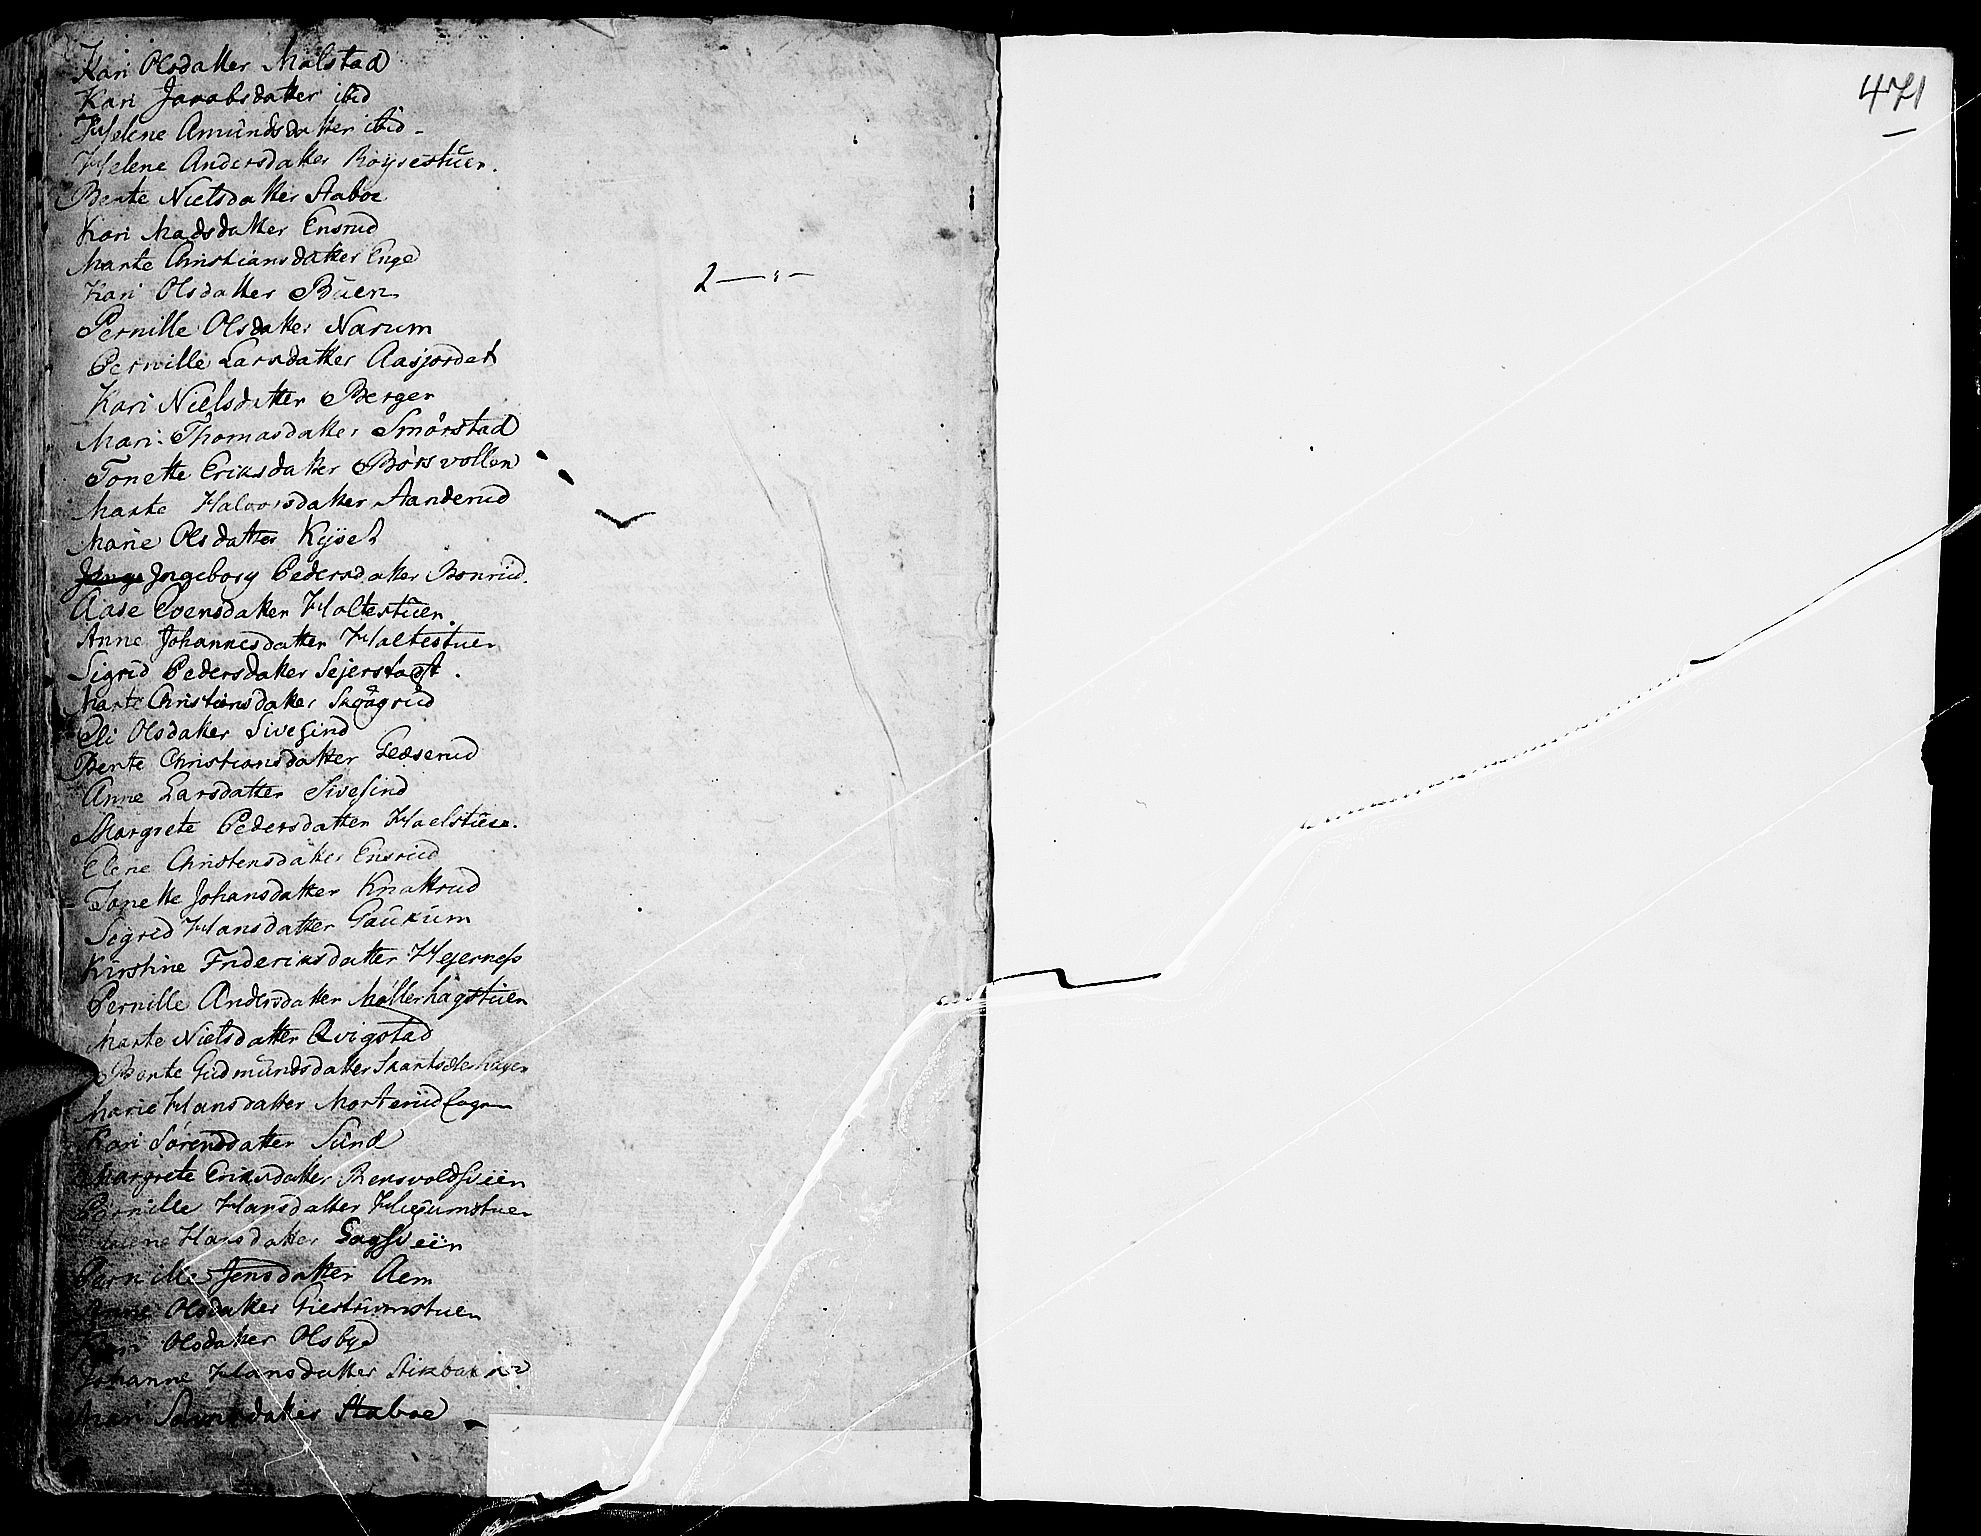 Kari Olsdatter Malstad
Kari Jacobsdatter ibid
Helene Amundsdatter ibid
Helene Andersdatter Röÿsestuen.
Berte Nielsdatter Staboe
Kari Madsdatter Ensrud
Marte Christiansdatter Enge
Kari Olsdatter Büen
Pernille Olsdatter Narum
Pernille Larsdatter Aasjordet
Kari Nielsdatter Berger
Mari Thomasdatter Smörstad
Tonette Eriksdatter Börsvollen
Marte Haloorsdatter Aanderud
Marie Olsdatter
Ingeborg Pedersdatter Bonrüd.
Aase Evensdatter Holtestüen.
Anne Johannesdatter Holtestuen
Sigrid Pedersdatter Sejerstad.
Marte Christiansdatter
Eli Olsdatter Sivesind
Berte Christiansdatter Glæserud
Anne Larsdatter Sivesind
Margrete Pedersdatter
Elene Christensdatter Ensrüd
Tonette Johansdatter Knattrud
Sigrid Hansdatter Gaukum
Kirstine Frideriksdatter
Pernille Andersdatter Möllerhagstüen
Marte Nielsdatter Qvigstad
Berte Gudmundsdatter
Marie Hansdatter Morterüd
Kari Sörensdatter Sünd
Margrete Eriksdatter
Pernille Hansdatter
Hansdatter
Pernille Jensdatter Aem
Anne Olsdatter
Kari Olsdatter Olsbye
Johanne Hansdatter
Mari Staboe
2
471